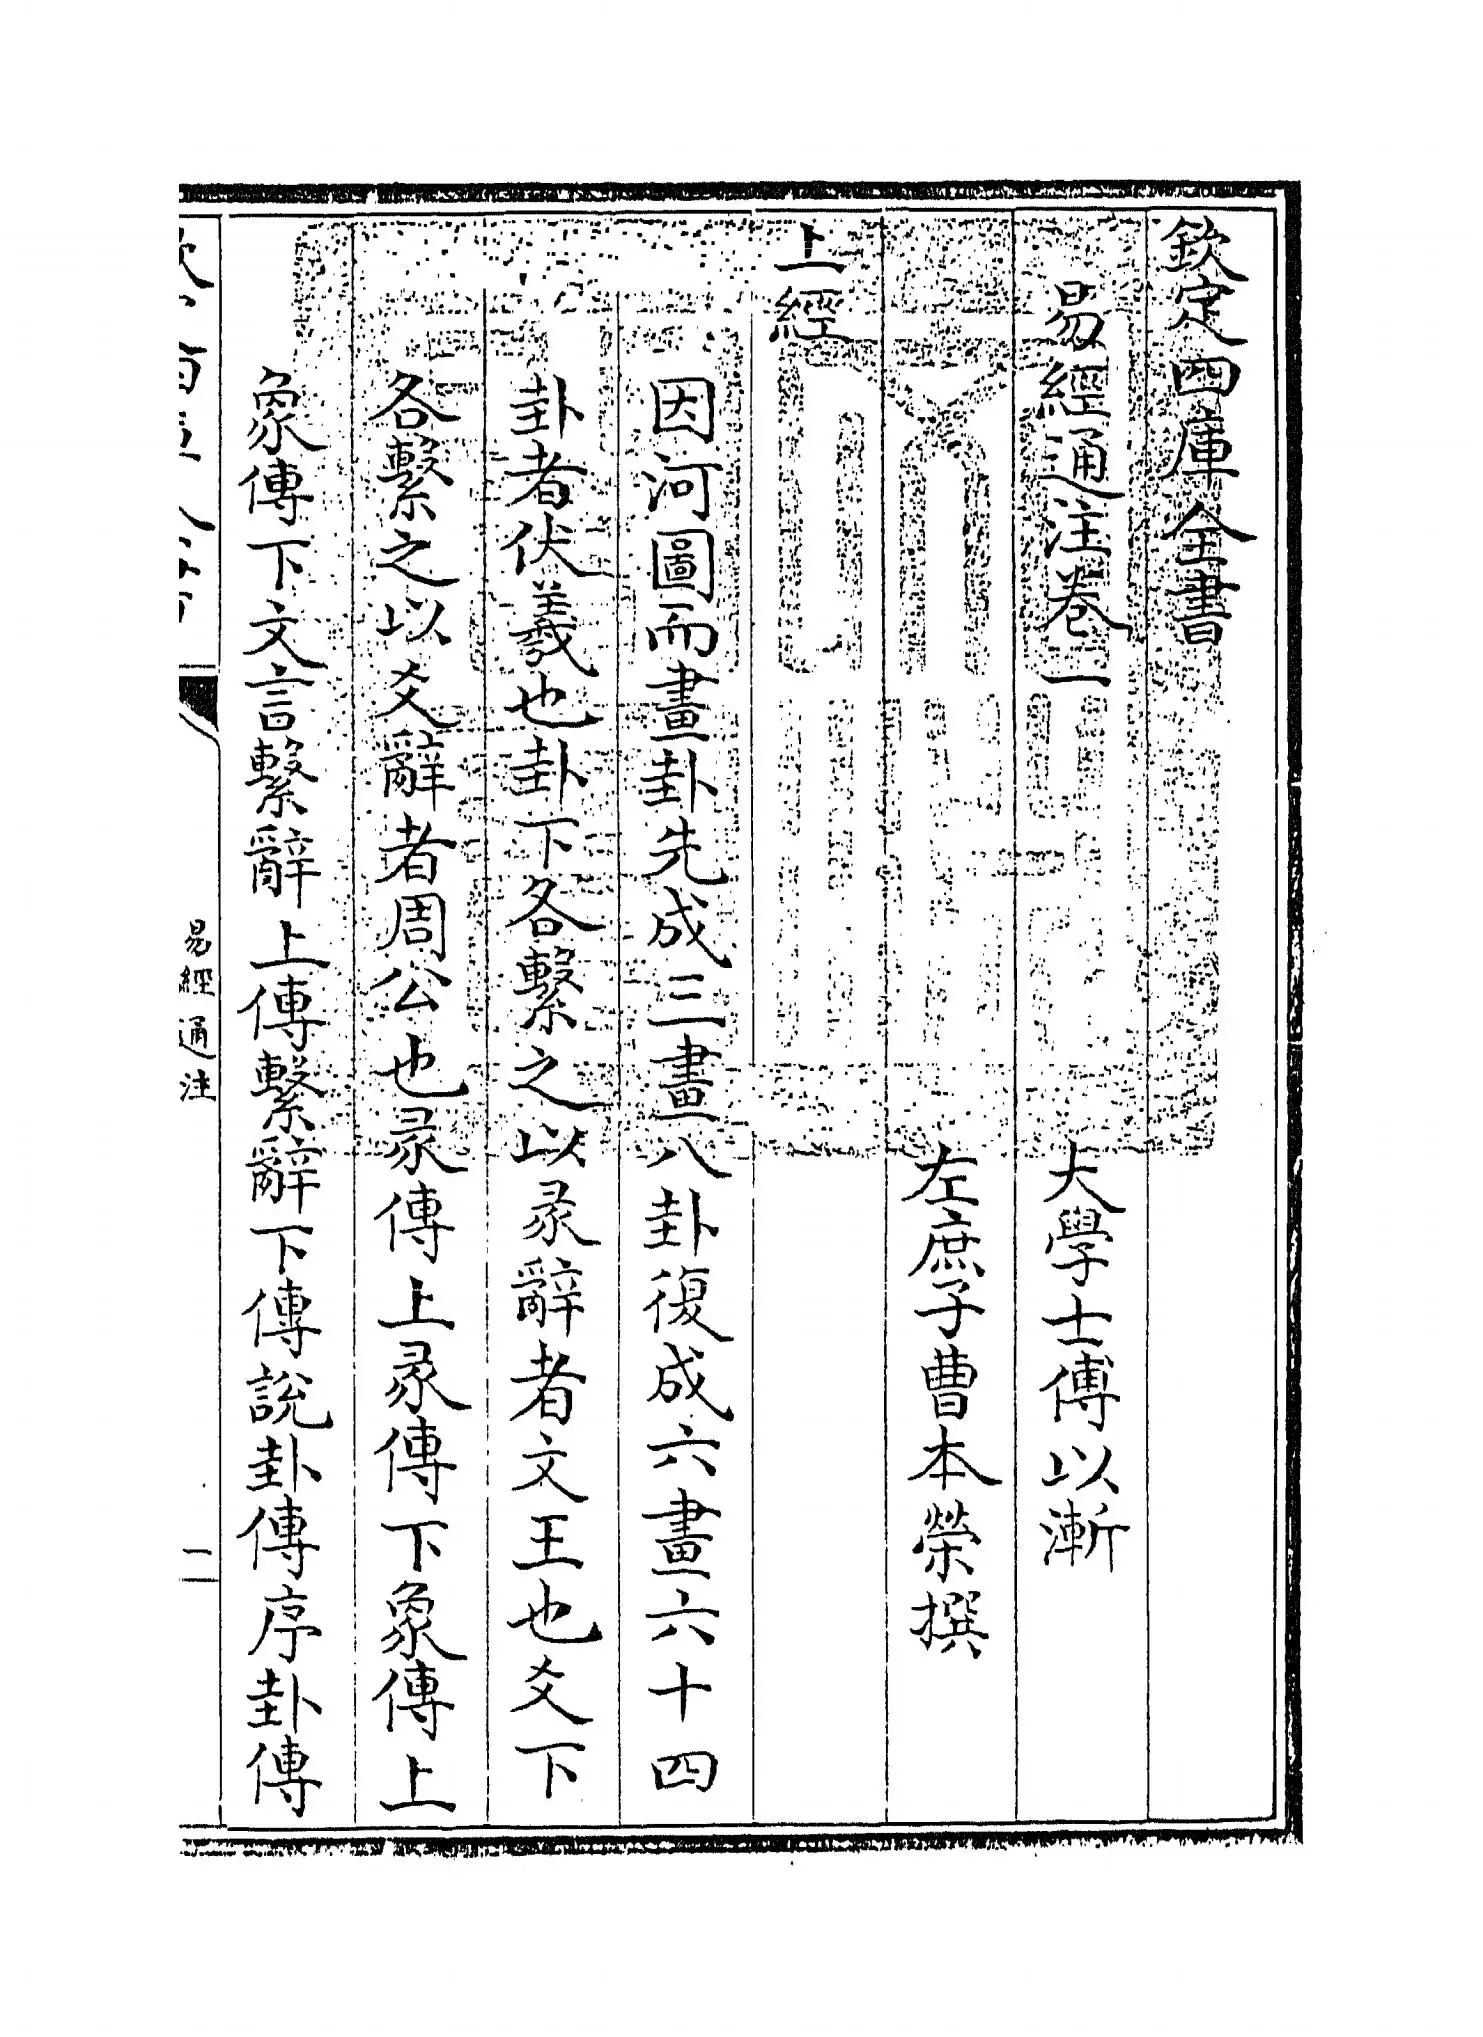 欽定四庫全書
易經通注卷一
大學士傅以漸
左庶子曹本榮撰
上經
因河圖而畫卦先成三畫八卦復成六畫六十四
卦者伏羲也卦下各繫之以彖辭者文王也爻下
各繫之以爻辭者周公也彖傳上彖傳下象傳上
象傳下文言繫辭上傳繫辭下傳說卦傳序卦傳
易經通注
一